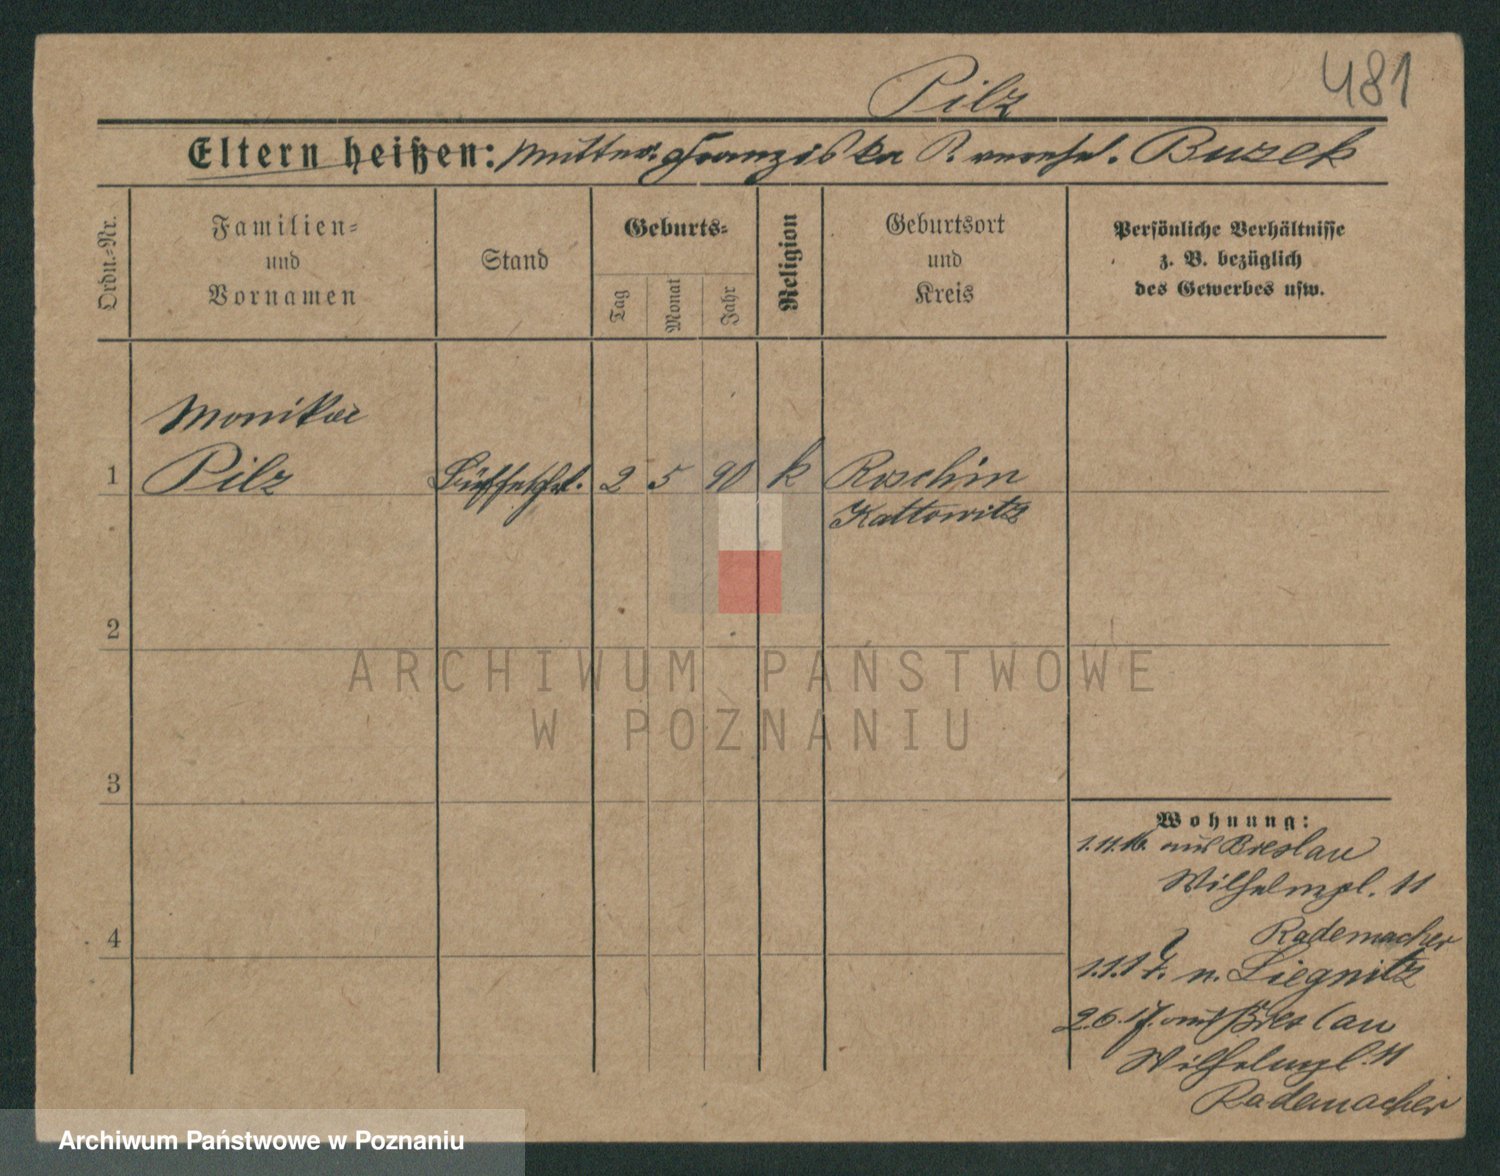 Pilz
481
Eltern heißen: Mutter: Franziska P. verehl. Buzek
Ordn.-Nr.
Familien-
und
Vornamen
Stand
Geburts-
Tag
Monat
Jahr
Religion
Geburtsort
und
Kreis
Persönliche Verhältnisse
z. B. bezüglich
des Gewerbes usw.
Monika
1 Pilz Büffetfrl. 2 5 90 k Roschin
Kattowitz
2
3
4
Wohnung:
1.11.16. aus Breslau
Wilhelmpl. 11
Rademacher
1.1.17. n. Liegnitz
2.6.17. aus Breslau
Wilhelmpl. 11
Rademacher
ARCHIWUM PAŃSTWOWE
W POZNANIU
Archiwum Państwowe w Poznaniu